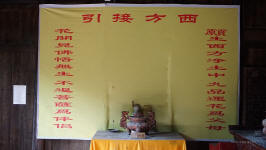 西方接引
願生西方淨土中九品蓮花爲父母
花開見佛悟無生不退菩薩爲伴侣